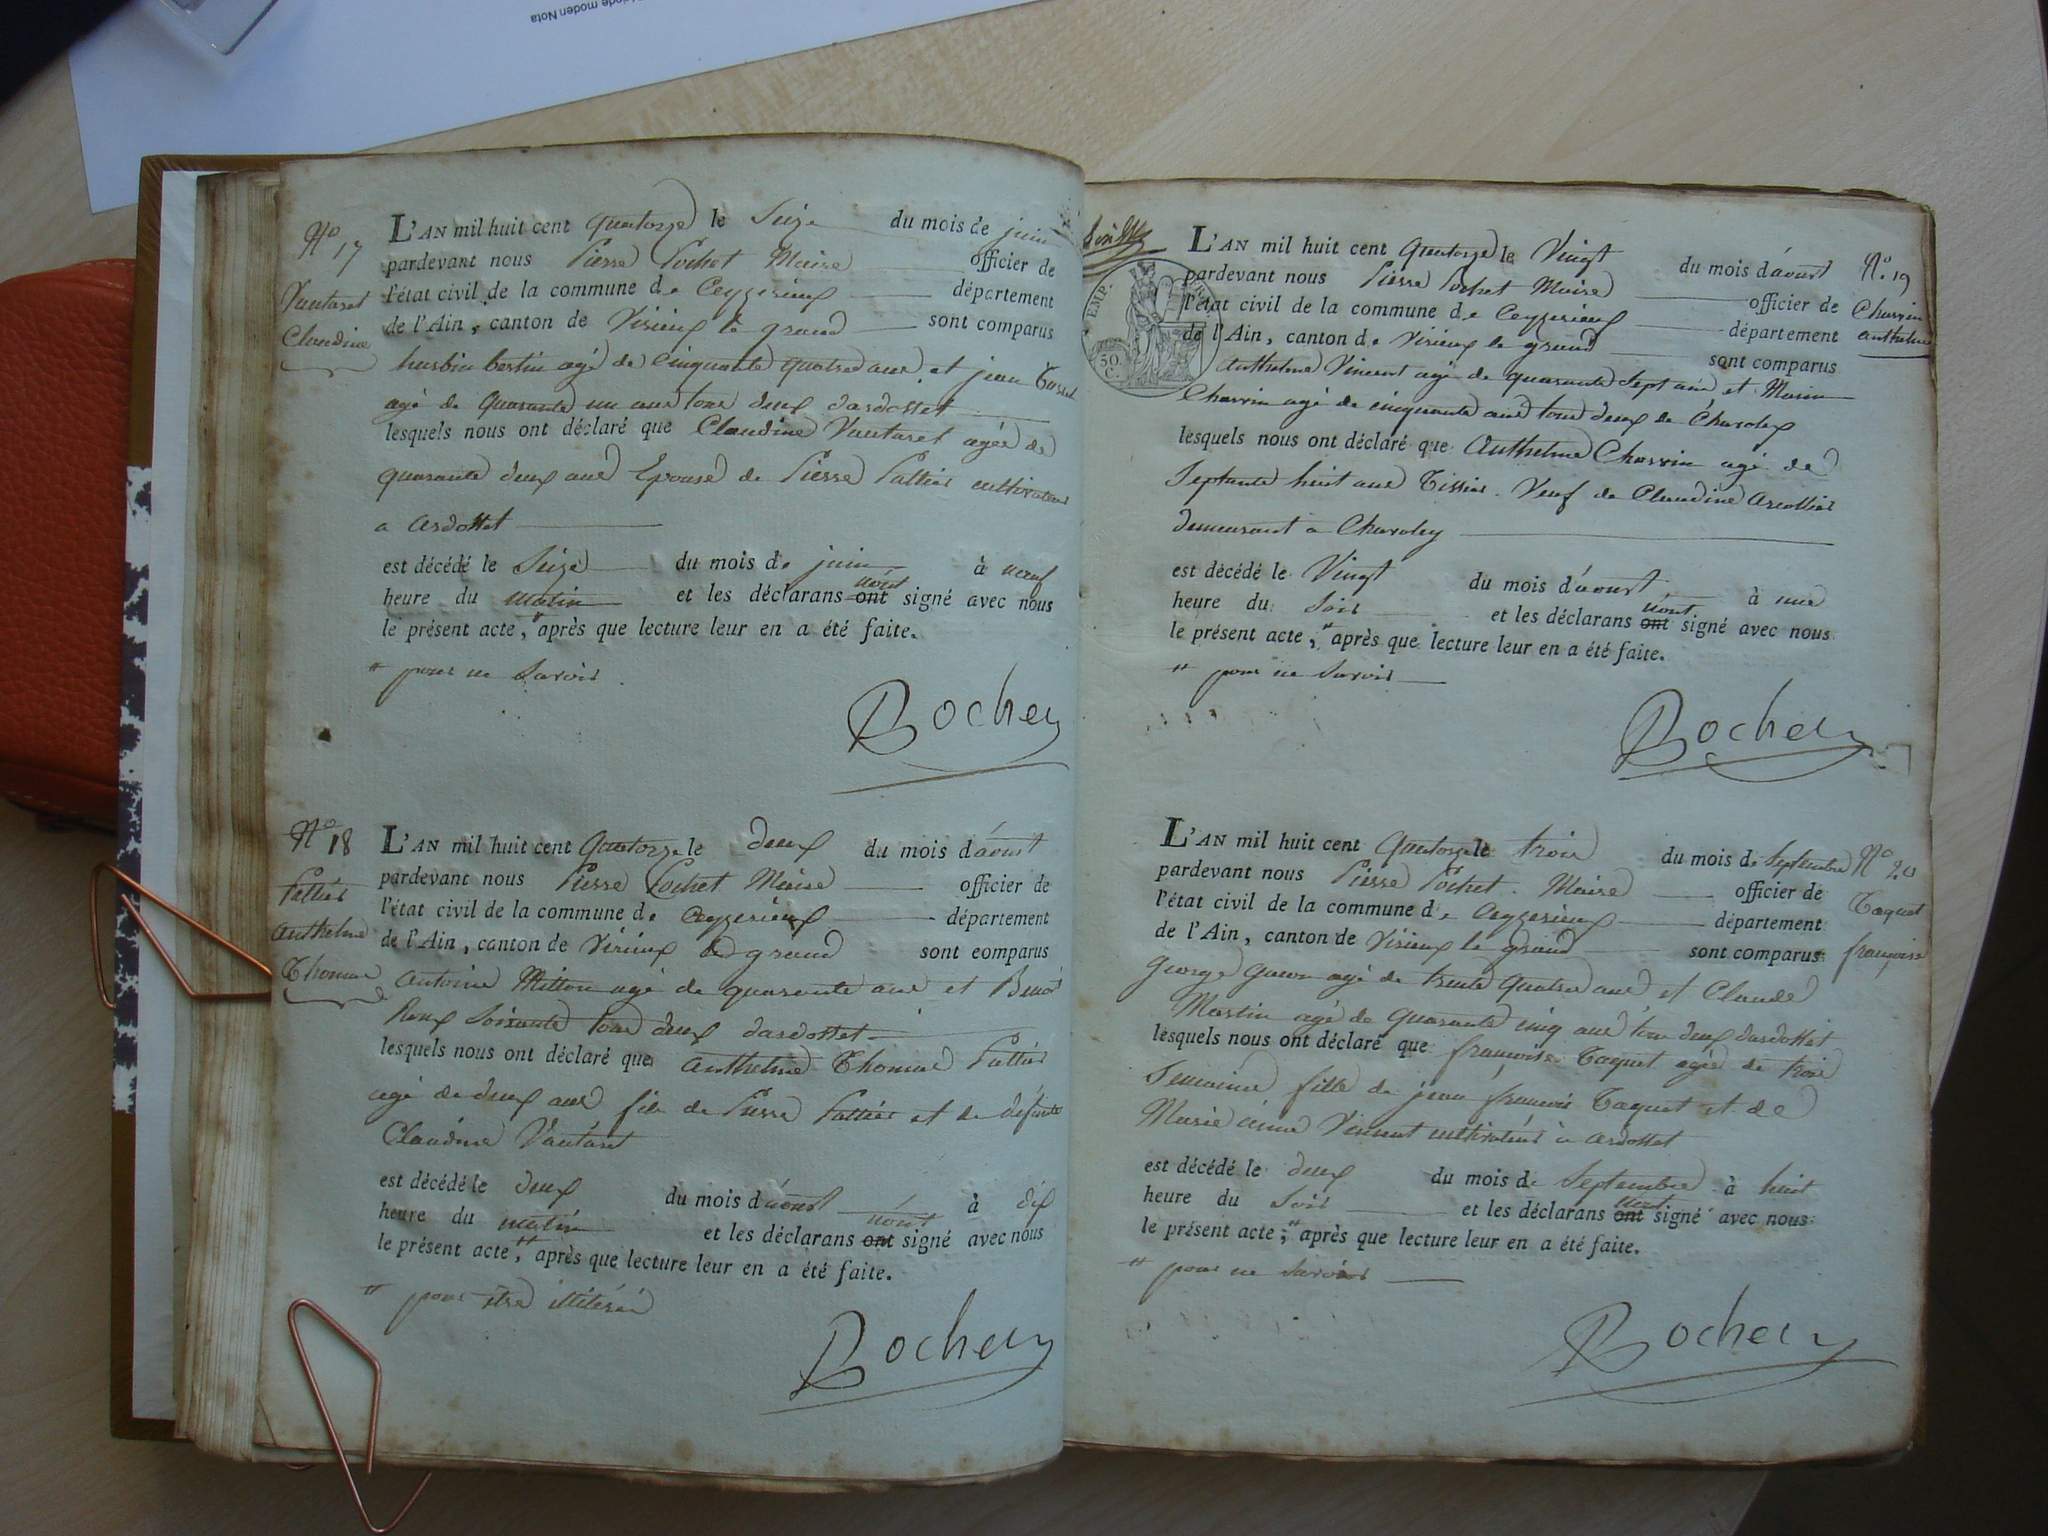 Nº 17
Vautaret
Claudine
L'AN mil huit cent quatorze le Seize du mois de juin
pardevant nous Pierre Pochet Maire officier de
l'état civil de la commune de Ceyzerieux département
de l'Ain, canton de Virieux le grand sont comparus
bertin agé de Cinquante quatre ans et jean
agé de Quarante un ans tous deux dardosset
lesquels nous ont déclaré que Claudine Vautaret agée de
quarante deux ans Epouse de Pierre Pattier cultivateur
a ardosset
est décédé le Seize du mois de juin à neuf
heure du matin et les déclarans ont nont signé avec nous
le présent acte, " après que lecture leur en a été faite.
" pour ne Savoir
Bochet
Nº 18
Pattier
anthelme
Thomas
L'AN mil huit cent Quatorze le deux du mois d'aoust
pardevant nous Pierre Pochet Maire officier de
l'état civil de la commune de Ceyzerieux département
de l'Ain, canton de Virieux le grand sont comparus
Antoine Mitton agé de quarante ans et Benoit
Roux Soixante tous deux dardosset
lesquels nous ont déclaré que anthelme Thomas Pattier
agé de deux ans fils de Pierre Pattier et de défunte
Claudine Vautaret
est décédé le deux du mois d'aoust à dix
heure du matin et les déclarans ont nont signé avec nous
le présent acte, " après que lecture leur en a été faite.
" pour etre illiteré
Bochet
EMP.
50
C.
L'AN mil huit cent Quatorze le Vingt du mois d'aoust
pardevant nous Pierre Pochet Maire officier de
l'état civil de la commune de Ceyzerieux département
de l'Ain, canton de Virieux le grand sont comparus
Anthelme Vincent agé de quarante Sept ans et Marin
Charvin agé de cinquante ans tous deux de Charoley
lesquels nous ont déclaré que Anthelme Charvin agé de
Septante huit ans Tissier Veuf de Claudine
demeurant a Charoley
est décédé le Vingt du mois d'aoust à une
heure du Soir et les déclarans ont nont signé avec nous
le présent acte, " après que lecture leur en a été faite.
" pour ne Savoir
Bochet
Nº 19
Charvin
anthelme
L'AN mil huit cent Quatorze le trois du mois de Septembre
pardevant nous Pierre Pochet Maire officier de
l'état civil de la commune de Ceyzerieux département
de l'Ain, canton de Virieux le grand sont comparus
George agé de trente Quatre ans et Claude
Martin agé de Quarante cinq ans tous deux dardosset
lesquels nous ont déclaré que françoise Taquet agée de trois
Semaine fille de jean françois Taquet et de
Marie Vincent cultivateur à ardosset
est décédé le deux du mois de Septembre à huit
heure du Soir et les déclarans ont nont signé avec nous
le présent acte, " après que lecture leur en a été faite.
" pour ne Savoir
Bochet
Nº 20
Taquet
françoise